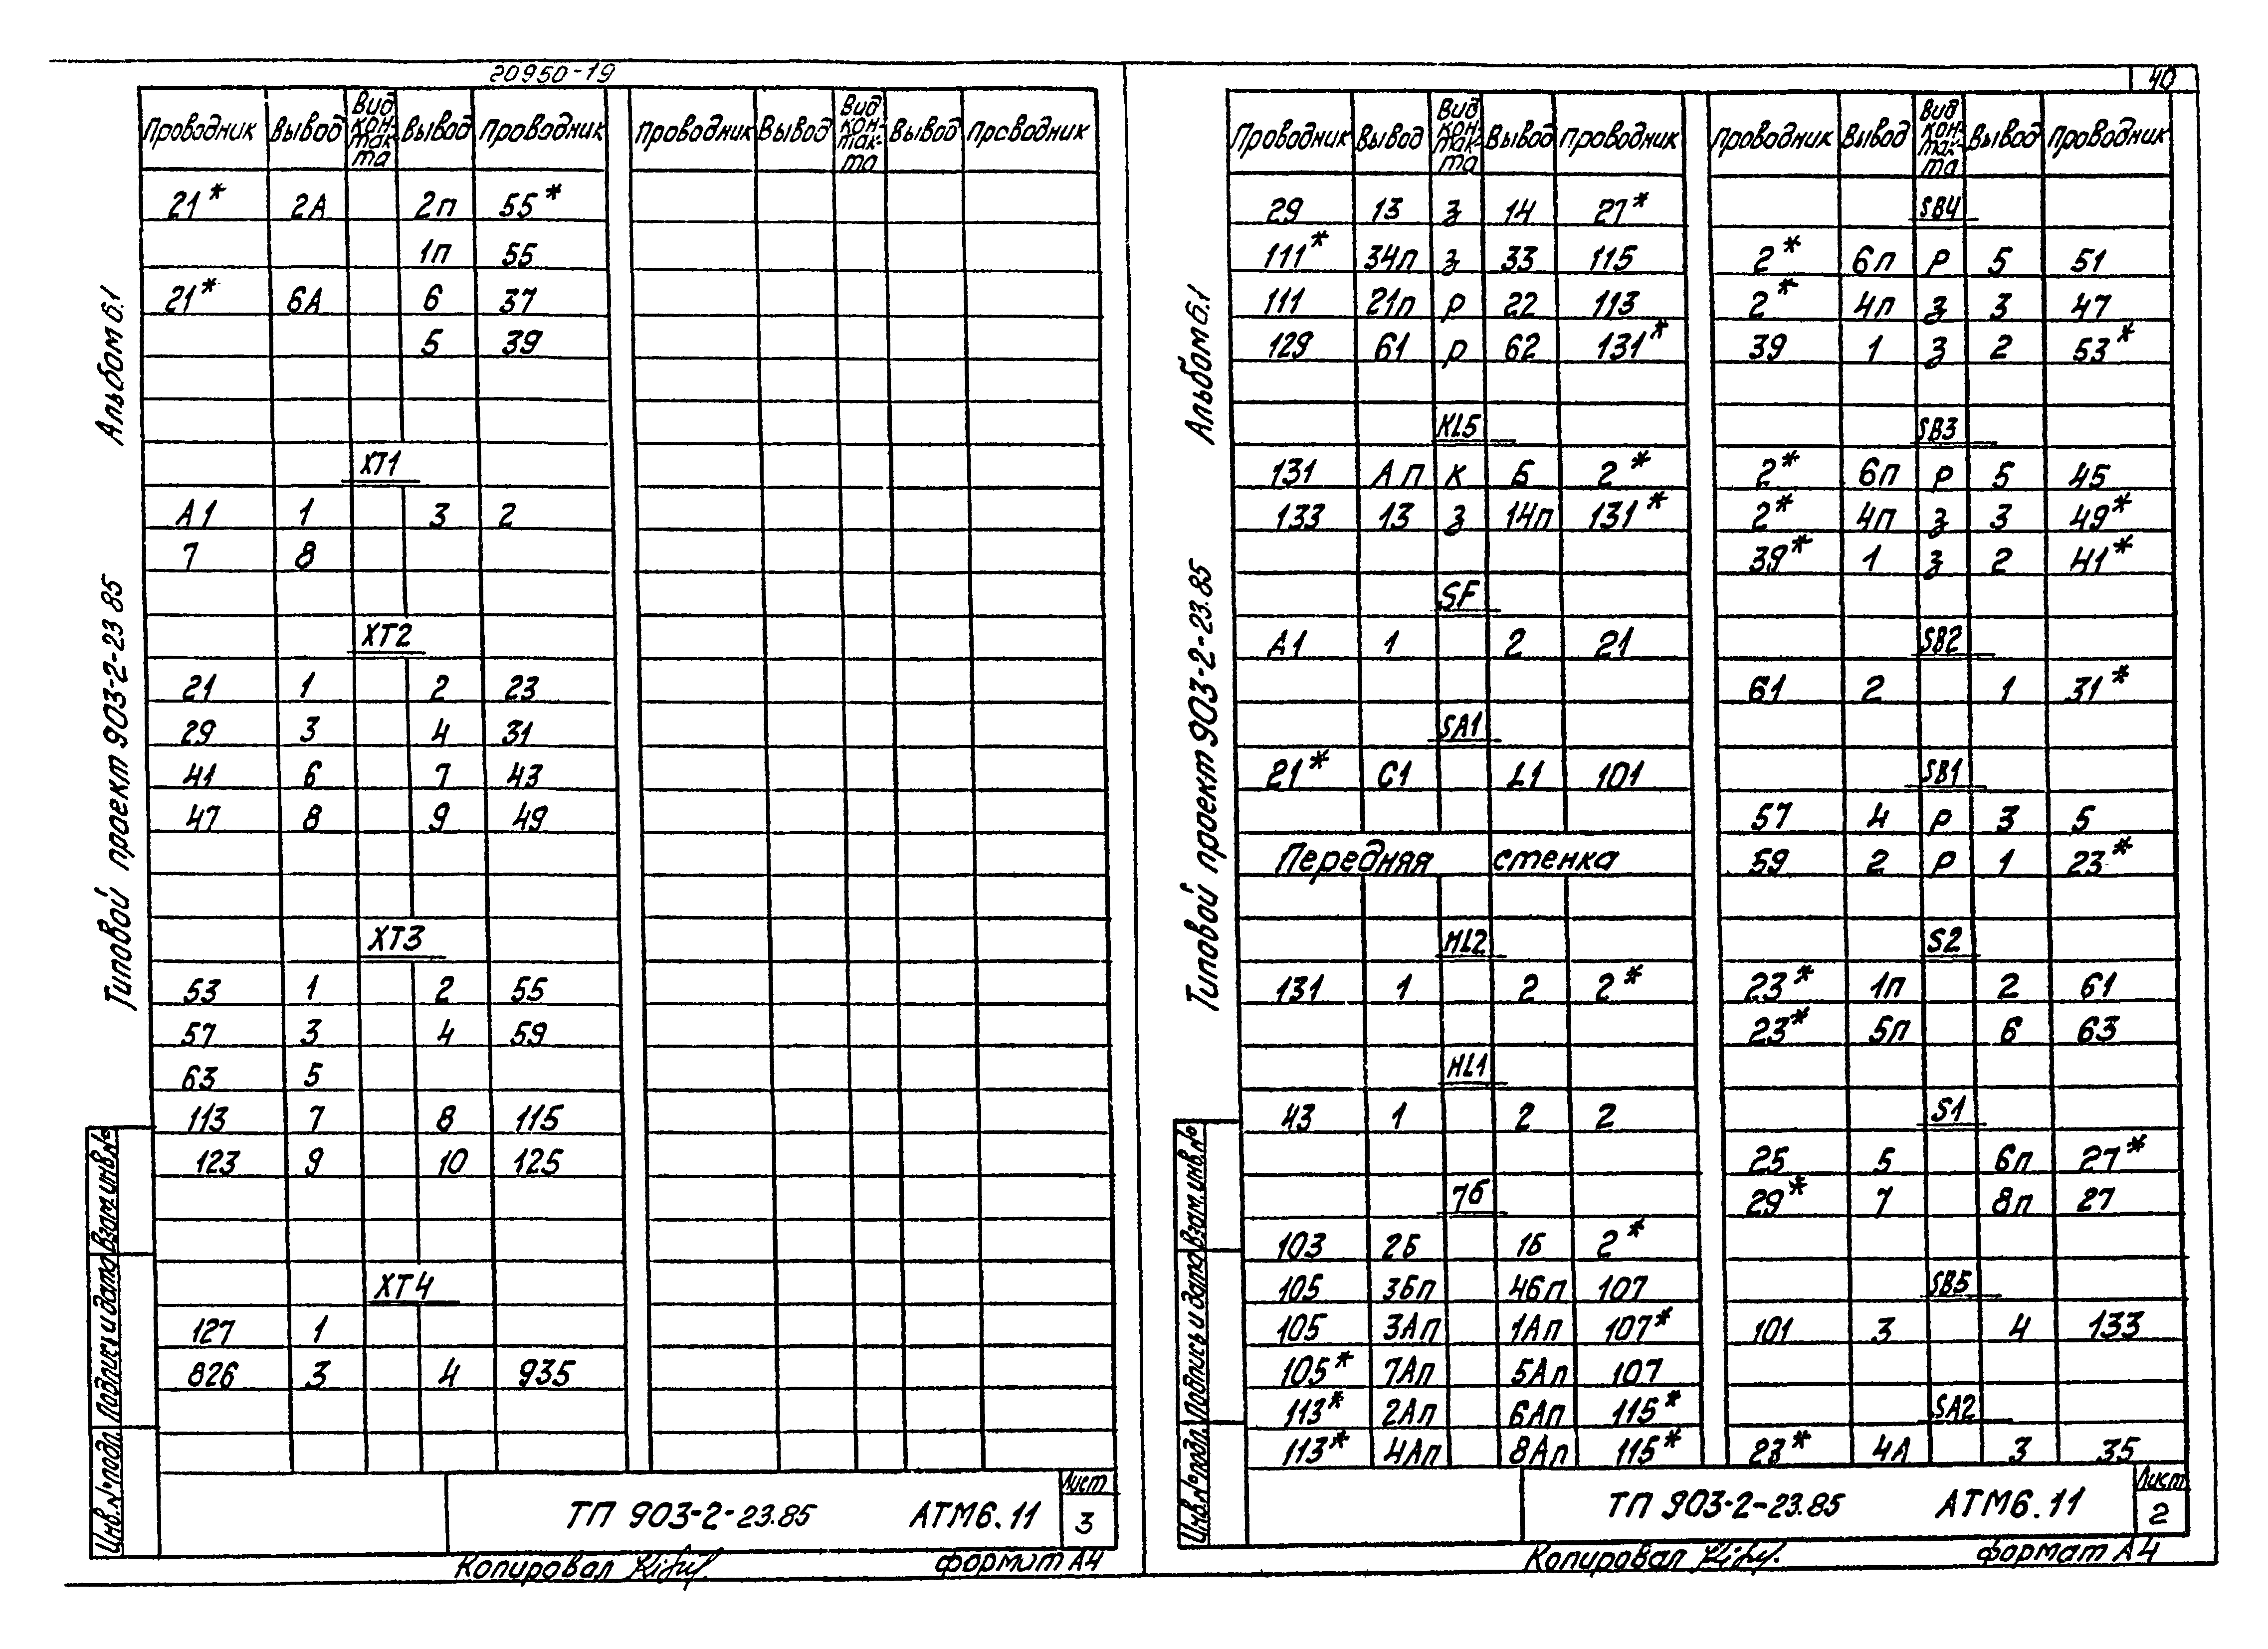 20950-19
40
Альбом 6.1
Типовой проект 903-2-23 85
Взам.инв.№
Подпись и дата
Инв.№подл.
Проводник Вывод Вид кон-так-та Вывод Проводник Проводник Вывод Вид кон-так-та Вывод Проводник
21* 2А 2п 55*
1п 55
21* 6А 6 37
5 39
XT1
А1 1 3 2
7 8
XT2
21 1 2 23
29 3 4 31
41 6 7 43
47 8 9 49
XT3
53 1 2 55
57 3 4 59
63 5
113 7 8 115
123 9 10 125
XT4
127 1
826 3 4 935
ТП 903-2-23.85 АТМ6.11
Лист
3
Копировал
формат А4
Альбом 6.1
Типовой проект 903-2-23.85
Взам.инв.№
Подпись и дата
Инв.№подл.
Проводник Вывод Вид кон-так-та Вывод Проводник
29 13 з 14 27*
111* 34п з 33 115
111 21п р 22 113
129 61 р 62 131*
KL5
131 Ап к Б 2*
133 13 з 14п 131*
SF
А1 1 2 21
SA1
21* C1 L1 101
Передняя стенка
HL2
131 1 2 2*
HL1
43 1 2 2
7б
103 2Б 1Б 2*
105 3Бп 4Бп 107
105 3Ап 1Ап 107*
105* 7Ап 5Ап 107
113* 2Ап 6Ап 115*
113* 4Ап 8Ап 115*
Проводник Вывод Вид кон-так-та Вывод Проводник
SB4
2* 6п р 5 51
2* 4п з 3 47
39 1 з 2 53*
SB3
2* 6п р 5 45
2* 4п з 3 49*
39* 1 з 2 41*
SB2
61 2 1 31*
SB1
57 4 р 3 5
59 2 р 1 23*
S2
23* 1п 2 61
23* 5п 6 63
S1
25 5 6п 27*
29* 7 8п 27
SB5
101 3 4 133
SA2
23* 4А 3 35
ТП 903-2-23.85 АТМ6.11
Лист
2
Копировал
формат А4